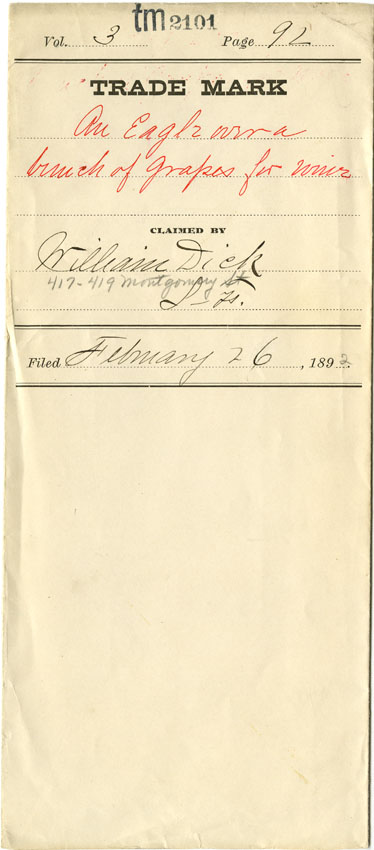 tm 2101
Vol. 3 Page 92
TRADE MARK
An Eagle over a
bunch of grapes for wine
CLAIMED BY
William Dick
417-419 Montgomery St
S. F.
Filed February 26, 1892.